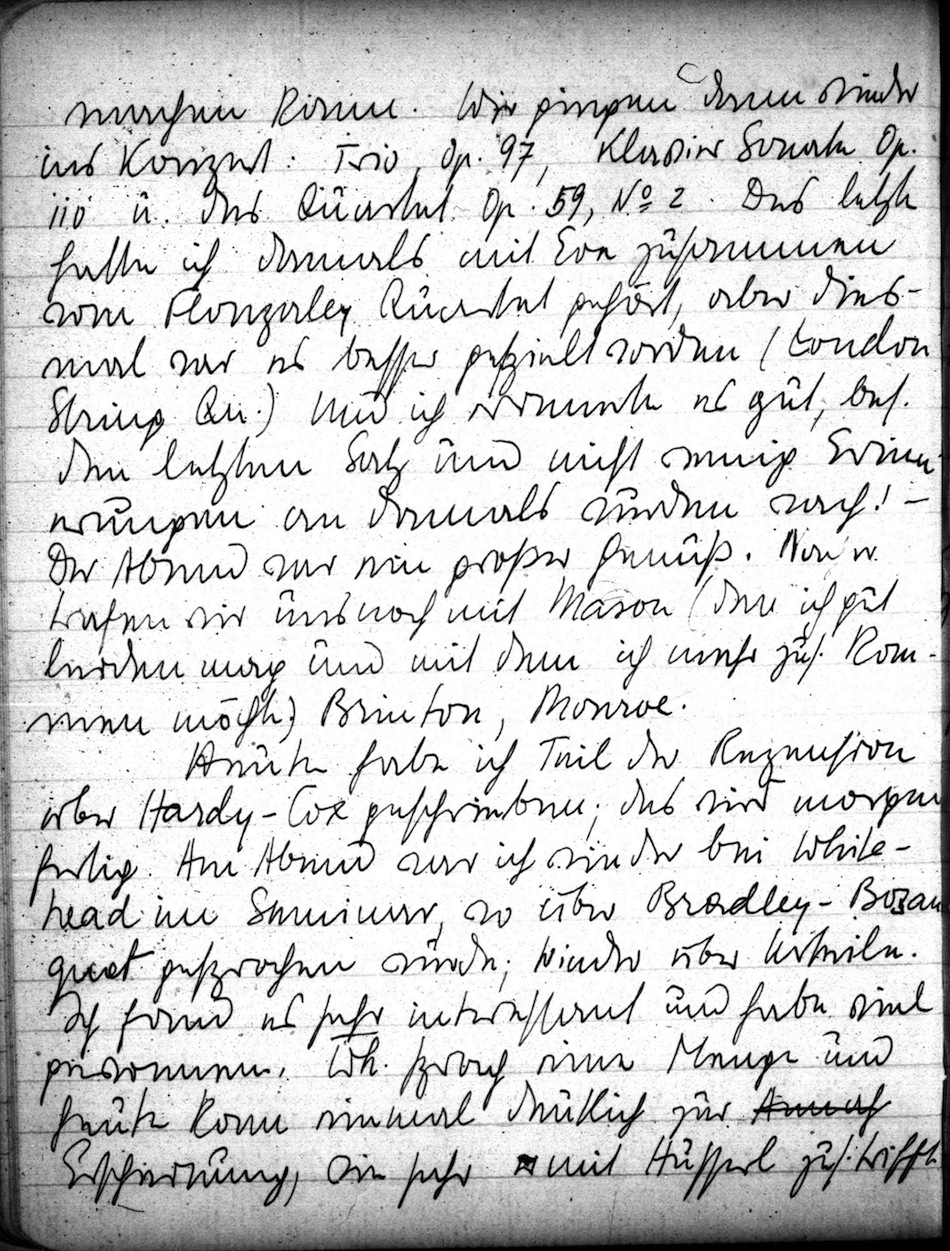 machen kann. Wir gingen dann wieder
ins Konzert: Trio Op. 97, Klavier Sonate Op.
110 u. das Quartet Op. 59, No 2. Das letzte
hatte ich damals mit Eva zusammen
vom Flonzaley Quartet gehört, aber dies-
mal war es besser gespielt worden (London
String Qu.) Und ich kannte es gut, bes.
den letzten Satz und nicht wenig Erinn-
erungen an damals wurden wach! –
Der Abend war ein großer Genuß.
trafen wir uns noch mit Mason (den ich gut
leiden mag und mit dem ich mehr zus. kom-
men möchte) Brinton, Monroe.
Heute habe ich Teil der Rezension
über Hardy-Cox geschrieben; das wird morgen
fertig. Am Abend war ich wieder bei White-
head im Seminar, wo über Bradley-Bozan
quet gesprochen wurde; wieder über Urteile.
Ich fand es sehr interessant und habe viel
gewonnen. Wh. sprach eine Menge und
heute kam einmal deutlich zur
Erscheinung, wie sehr mit Husserl zus. trifft